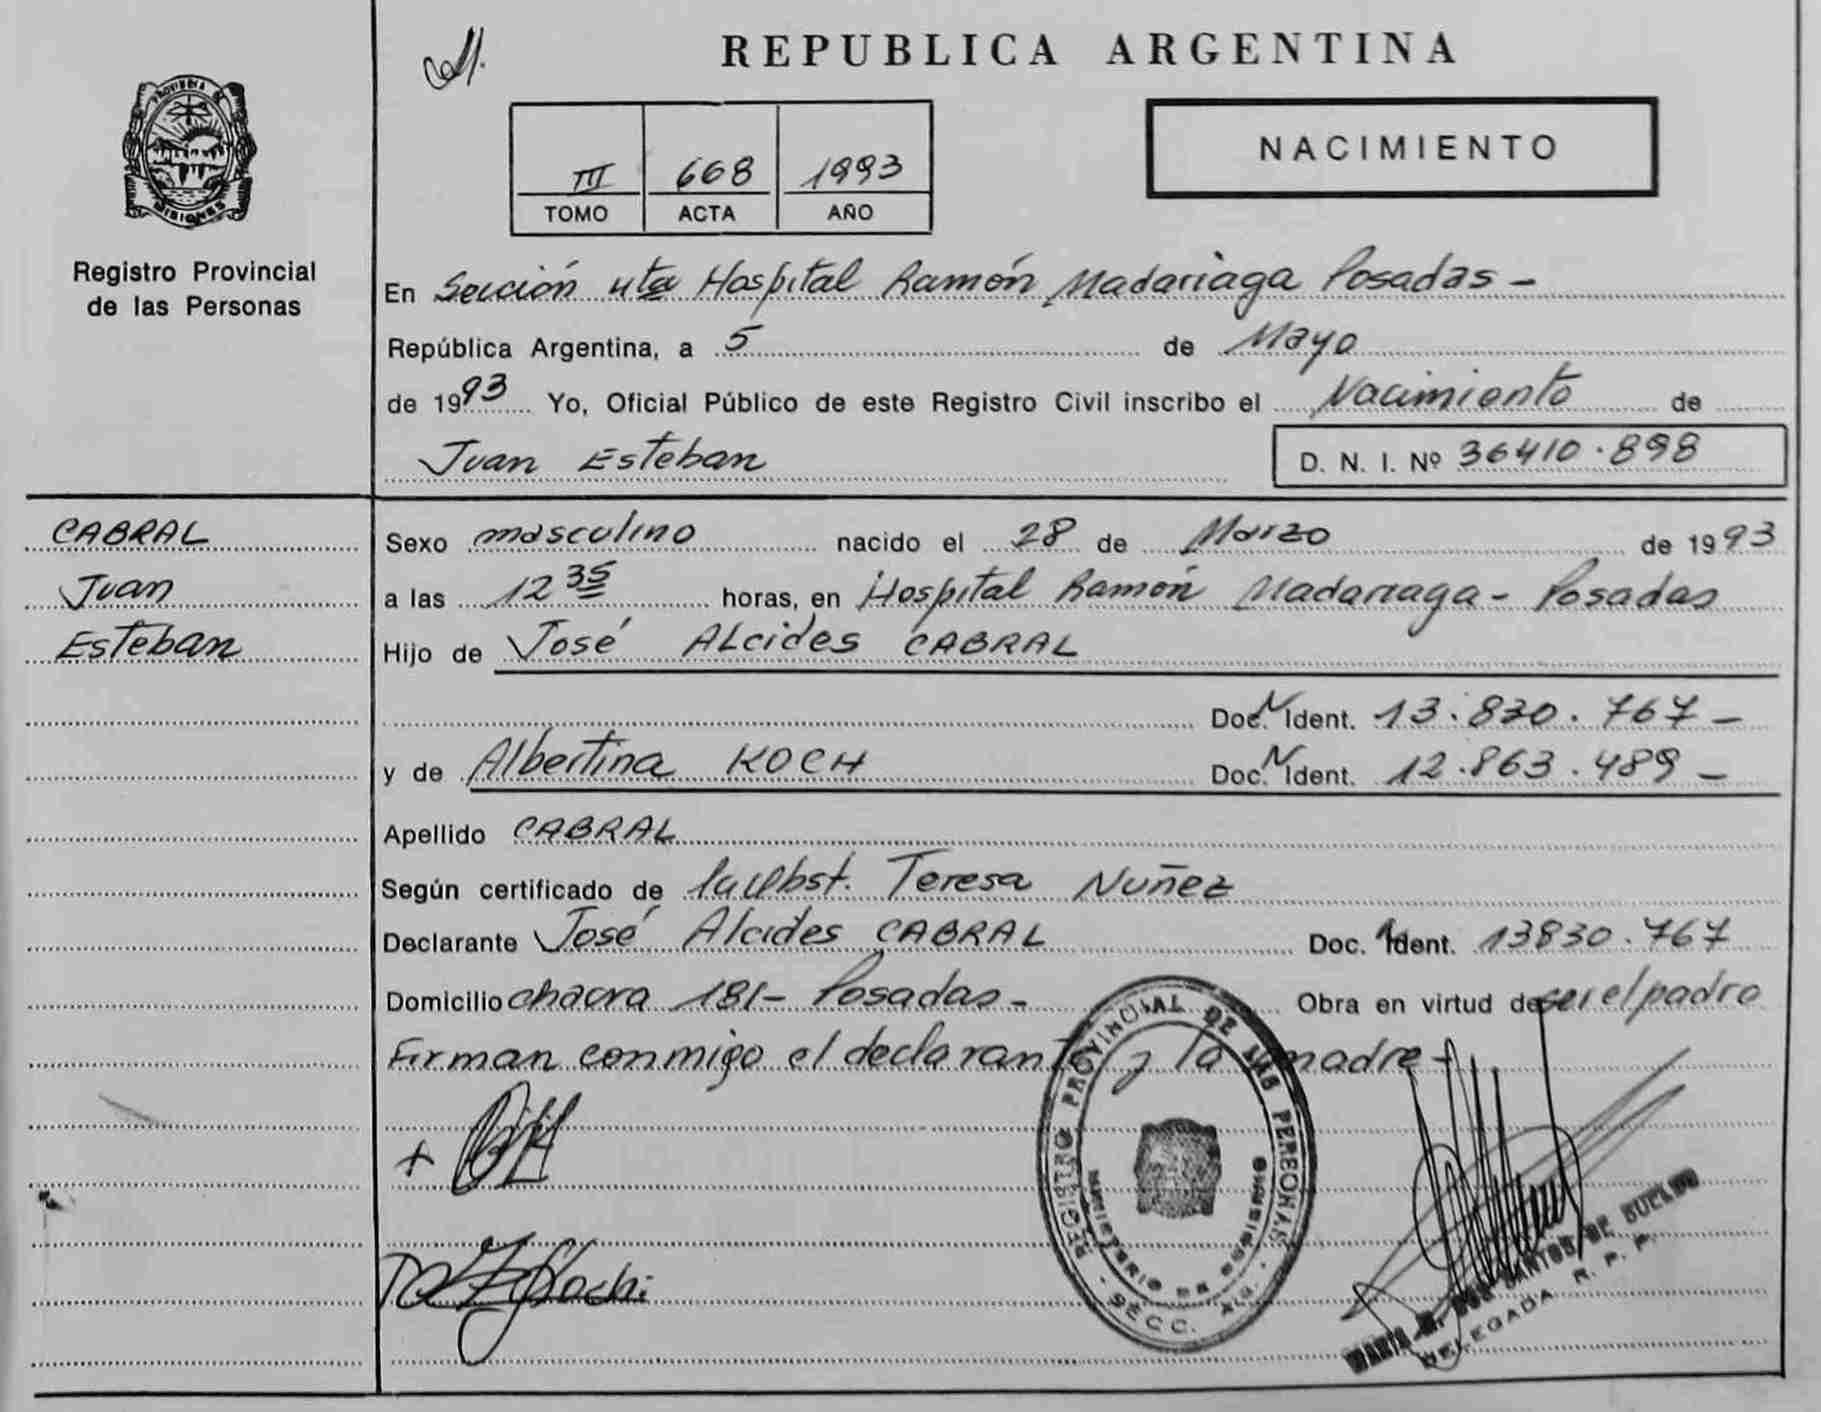 REPUBLICA ARGENTINA
PROVINCIA DE
MISIONES
Registro Provincial
de las Personas
III 668 1993
TOMO ACTA AÑO
NACIMIENTO
En Sección 4ta Hospital Ramón Madariaga Posadas -
República Argentina, a 5 de Mayo
de 1993 Yo, Oficial Público de este Registro Civil inscribo el Nacimiento de
Juan Esteban
D. N. I. Nº 36410.898
CABRAL
Juan
Esteban
Sexo masculino nacido el 28 de Marzo de 1993
a las 12 35 horas, en Hospital Ramón Madariaga - Posadas
Hijo de José ALcides CABRAL
Doc. N Ident. 13.830.767 -
y de Albertina KOCH Doc. N Ident. 12.863.489 -
Apellido CABRAL
Según certificado de la Obst. Teresa Nuñez
Declarante José Alcides CABRAL Doc. Ident. 13830.767
Domicilio chacra 181 - Posadas - Obra en virtud de ser el padre
Firman conmigo el declarante y la madre -
REGISTRO PROVINCIAL DE LAS PERSONAS
MINISTERIO DE GOBIERNO
SECC.
DOS SANTOS DE BUELDO
DELEGADA R. P. P.